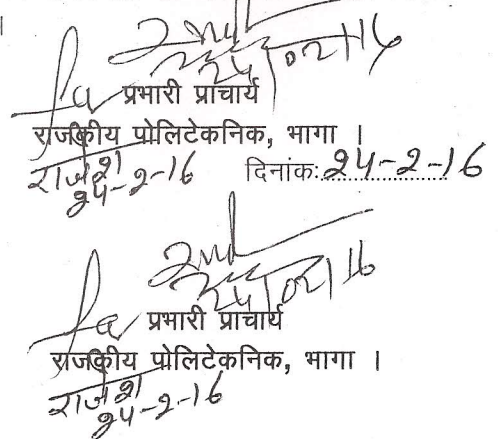 24/02/16
प्रभारी प्राचार्य
राजकीय पोलिटेकनिक, भागा ।
राजेश
24-2-16 दिनांक: 24-2-16
24/02/16
प्रभारी प्राचार्य
राजकीय पोलिटेकनिक, भागा ।
राजेश
24-2-16